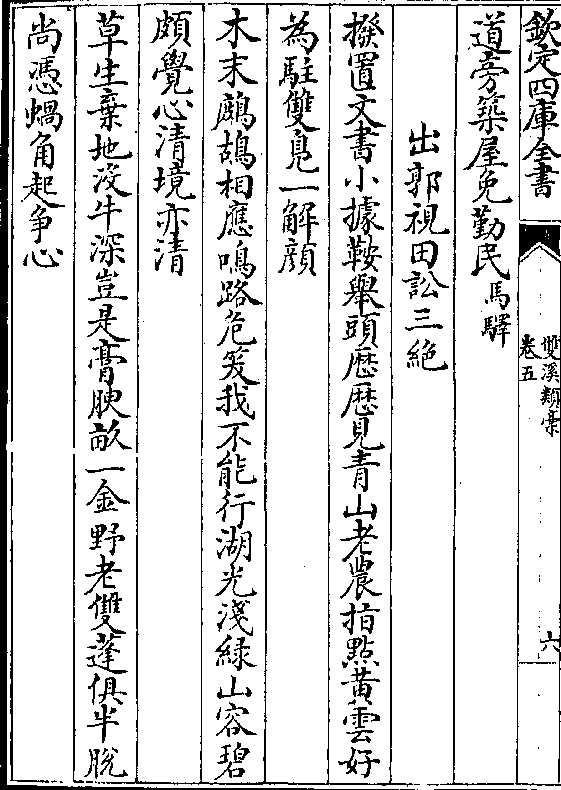 欽定四庫全書
雙溪類藁
卷五
六
道旁築屋免勤民馬驛
出郭視田訟三絶
撥置文書小據鞍舉頭歴歴見青山老農指點黄雲好
為駐雙鳬一解顔
木末鷓鴣相應鳴路危笈我不能行湖光淺緑山容碧
頗覺心清境亦清
草生棄地没牛深豈是膏腴畝一金野老雙蓬俱半脫
尚憑蝸角起争心